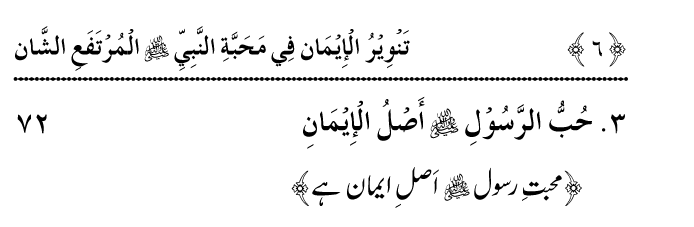 ﴿٦﴾ تَنْوِيْرُ الْإِيْمَان فِي مَحَبَّةِ النَّبِيِّ ﷺ الْمُرْتَفَعِ الشَّان
٣. حُبُّ الرَّسُوْلِ ﷺ أَصْلُ الْإِيْمَانِ ٧٢
﴿محبتِ رسول ﷺ اَصلِ ایمان ہے﴾